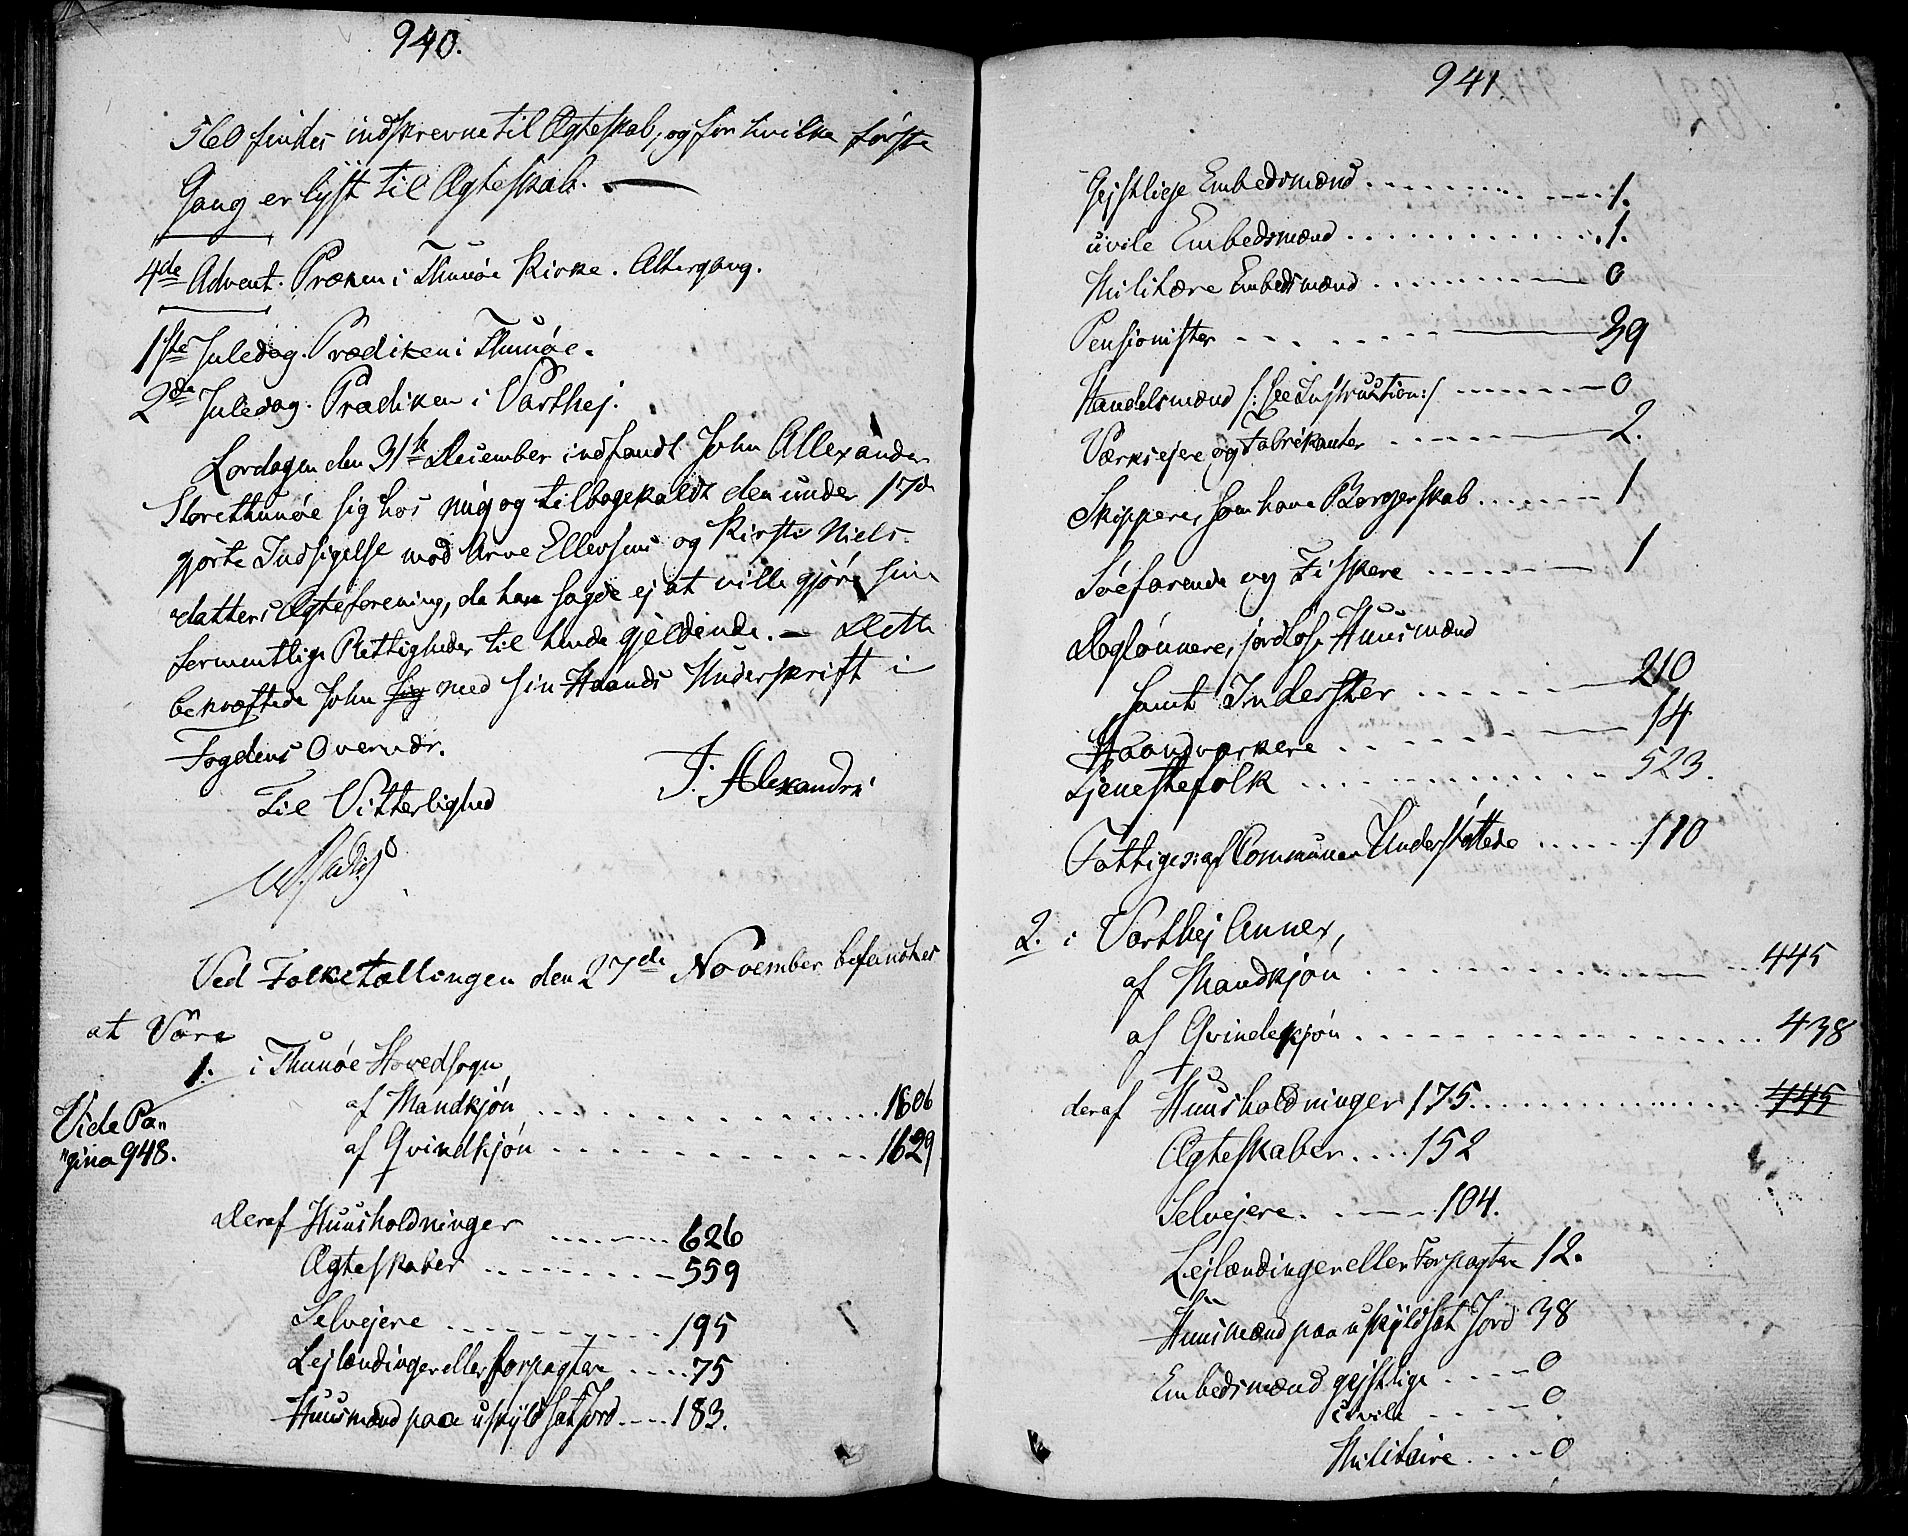 940.
560 findes indskrevne til Ægteskab, og for hvilke første
Gang er lyst til Ægteskab.
4de Advent. Præken i Thunøe Kirke. Altergang.
1ste Juledag. Prædiken i Thunøe.
2de Juledag. Prædiken i Varthej.
Lørdagen den 31te December indfandt John Allexander
Storethunøe sig hos mig og tilbagekaldt den under 17de
gjorte Indsigelse mod Arve Ellevsens og Kirsti Niels-
datters Ægteforening, da han sagde ej at ville gjøre sine
formentlige Rettigheder til hende gjeldende. — Dette
bekræftede John sig med sin Haands Underskrift i
Fogdens Overvær.
Til Vitterlighed
J. Alexandri
Ved Folketællingen den 27de November befandtes
at Være
1. i Thunøe Hovedsogn
af Mandkjøn 1606
Vide Pa-
"gina 948.
af Qvindkjøn 1629
Deraf Huusholdninger 626
Ægteskaber 559
Selvejere 195
Lejlændinger eller forpagtere 75
Huusmænd paa uskyldsat Jord 183.
941
Gejstlige Embedsmænd 1.
civile Embedsmænd 1.
Militære Embedsmænd 0
Pensionister 39
Handelsmænd /: see Instruction :/ 0
Værksejere og Fabrikanter 2.
Skippere, som have Borgerskab 1
Søefarende og Fiskere 1
Daglønnere, jordløse Huusmænd
samt Inderster 210
Haandværkere 14
Tjenestefolk 523.
Fattige af Communen Understøttede 110
2. i Varthej Annex,
af Mandkjøn 445
af Qvindekjøn 438
deraf Huusholdninger 175 445
Ægteskaber 152
Selvejere 104.
Lejlændinger eller Forpagtere 12.
Huusmænd paa uskyldsat Jord 38
Embedsmænd gejstlige 0
civile 0
Militaire 0